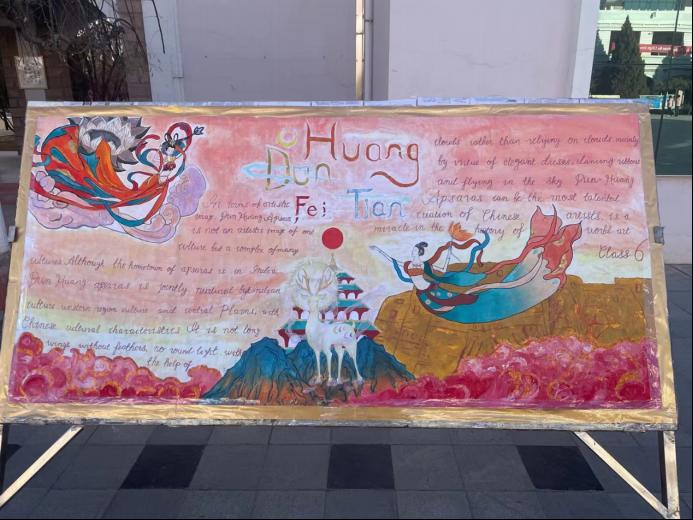 Dun Huang
Fei Tian
In terms of artistic
image, Dun Huang Apsaras
is not an artistic image of one
culture but a complex of many
cultures. Although the hometown of apsaras is in India.
Dun Huang apsaras is jointly nurtured by Indian
culture western region culture and central Plains, with
Chinese cultural characteristics. It is not long
wings without feathers, no round light with
the help of
clouds rather than relying on clouds. mainly
by virtue of elegant dresses, dancing ribbons
and flying in the sky. Dun Huang
Apsaras can be the most talented
creation of Chinese artists, is a
miracle in the history of world art
Class 6